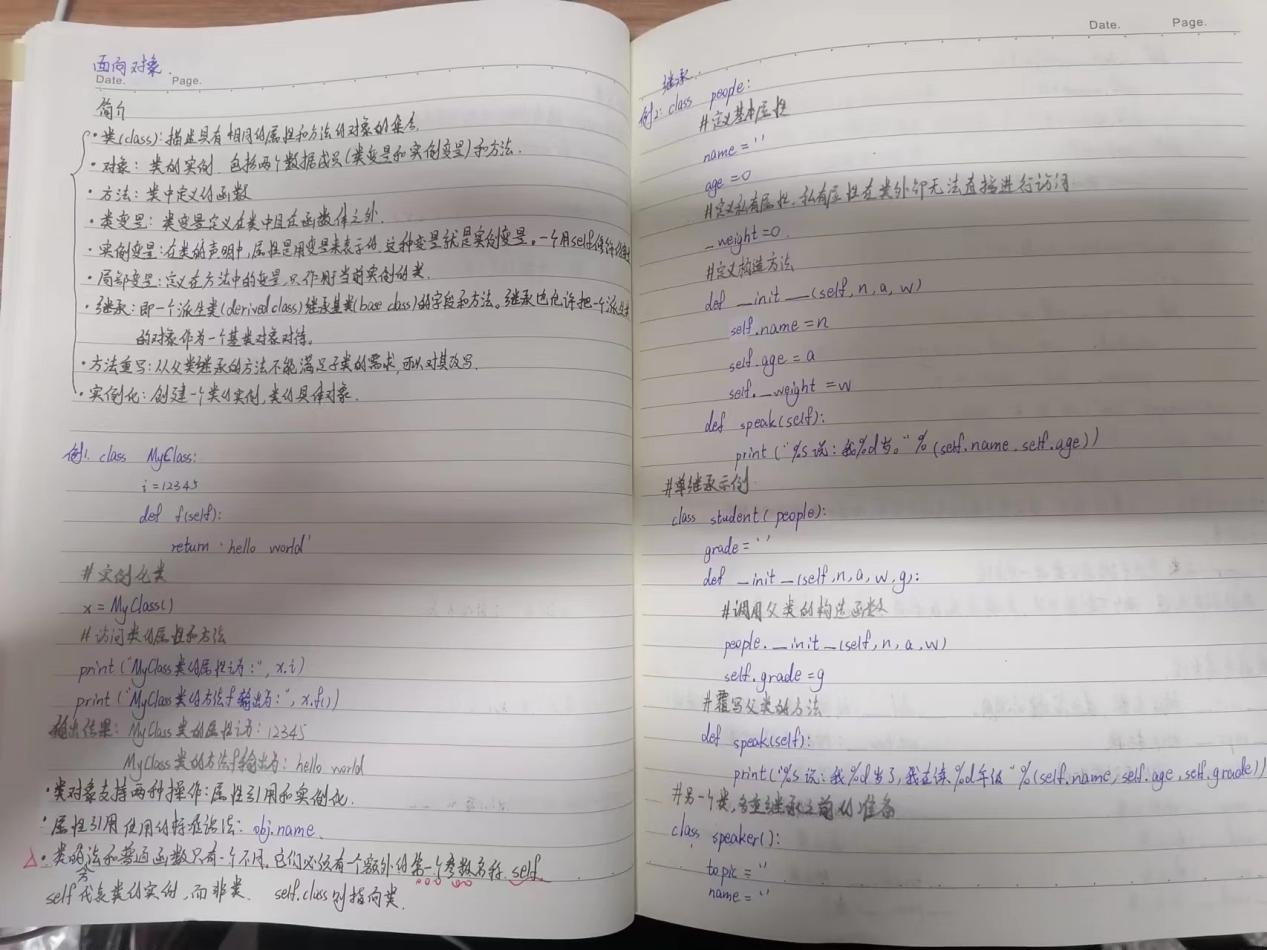 面向对象.
Date. Page.
简介
·类(class):描述具有相同的属性和方法的对象的集合.
·对象:类的实例.包括两个数据成员(类变量和实例变量)和方法.
·方法:类中定义的函数
·类变量:类变量定义在类中且在函数体之外.
·实例变量:在类的声明中,属性是用变量来表示的.这种变量就是实例变量。一个用self
·局部变量:定义在方法中的变量,只作用于当前实例的类.
·继承:即一个派生类(derived class)继承基类(base class)的字段和方法。继承也允许把一个派生
的对象作为一个基类对象对待。
·方法重写:从父类继承的方法不能满足子类的需求,可以对其改写.
·实例化:创建一个类的实例,类的具体对象.
例1. class MyClass:
i=12345
def f(self):
return 'hello world'
#实例化类
x = MyClass()
#访问类的属性和方法
print("MyClass类的属性i为:", x.i)
print("MyClass类的方法f输出为:", x.f())
输出结果: MyClass类的属性i为: 12345
MyClass类的方法f输出为: hello world
·类对象支持两种操作:属性引用和实例化.
·属性引用使用的标准语法: obj.name.
△·类的方法和普通函数只有一个不同.它们必须有一个额外的第一个参数名称.self
self代表类的实例,而非类. self.class则指向类.
Date. Page.
继承
例2: class people:
#定义基本属性
name=''
age=0
#定义私有属性,私有属性在类外部无法直接进行访问
_weight=0
#定义构造方法
def __init__(self,n,a,w)
self.name=n
self.age=a
self._weight=w
def speak(self):
print("%s说:我%d岁。"%(self.name.self.age))
#单继承示例
class student(people):
grade=''
def _init_(self,n,a,w,g):
#调用父类的构造函数
people.__init_(self,n,a,w)
self.grade=g
#覆写父类的方法
def speak(self):
print("%s说:我%d岁了,我在读%d年级"%(self.name,self.age,self.grade))
#另一个类,多重继承之前的准备
class speaker():
topic=''
name=''